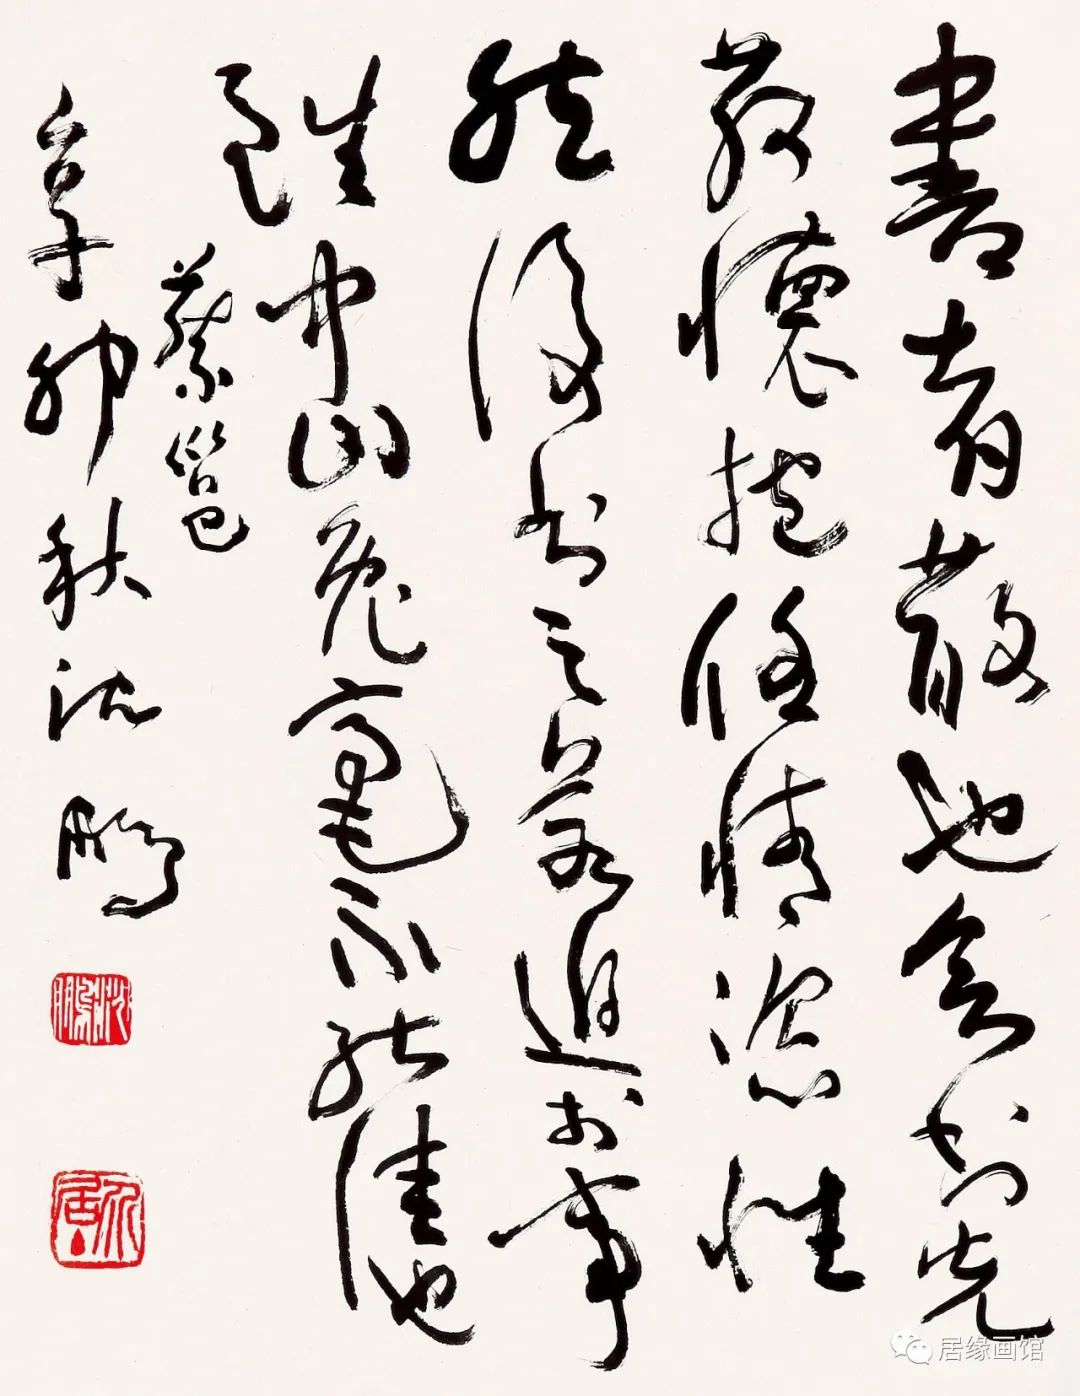 書者散也欲書先
散懷抱任情恣性
然後書之若迫於事
雖中山兔毫不能佳也
蔡邕
辛卯秋沈鵬
沈鵬
居
居缘画馆